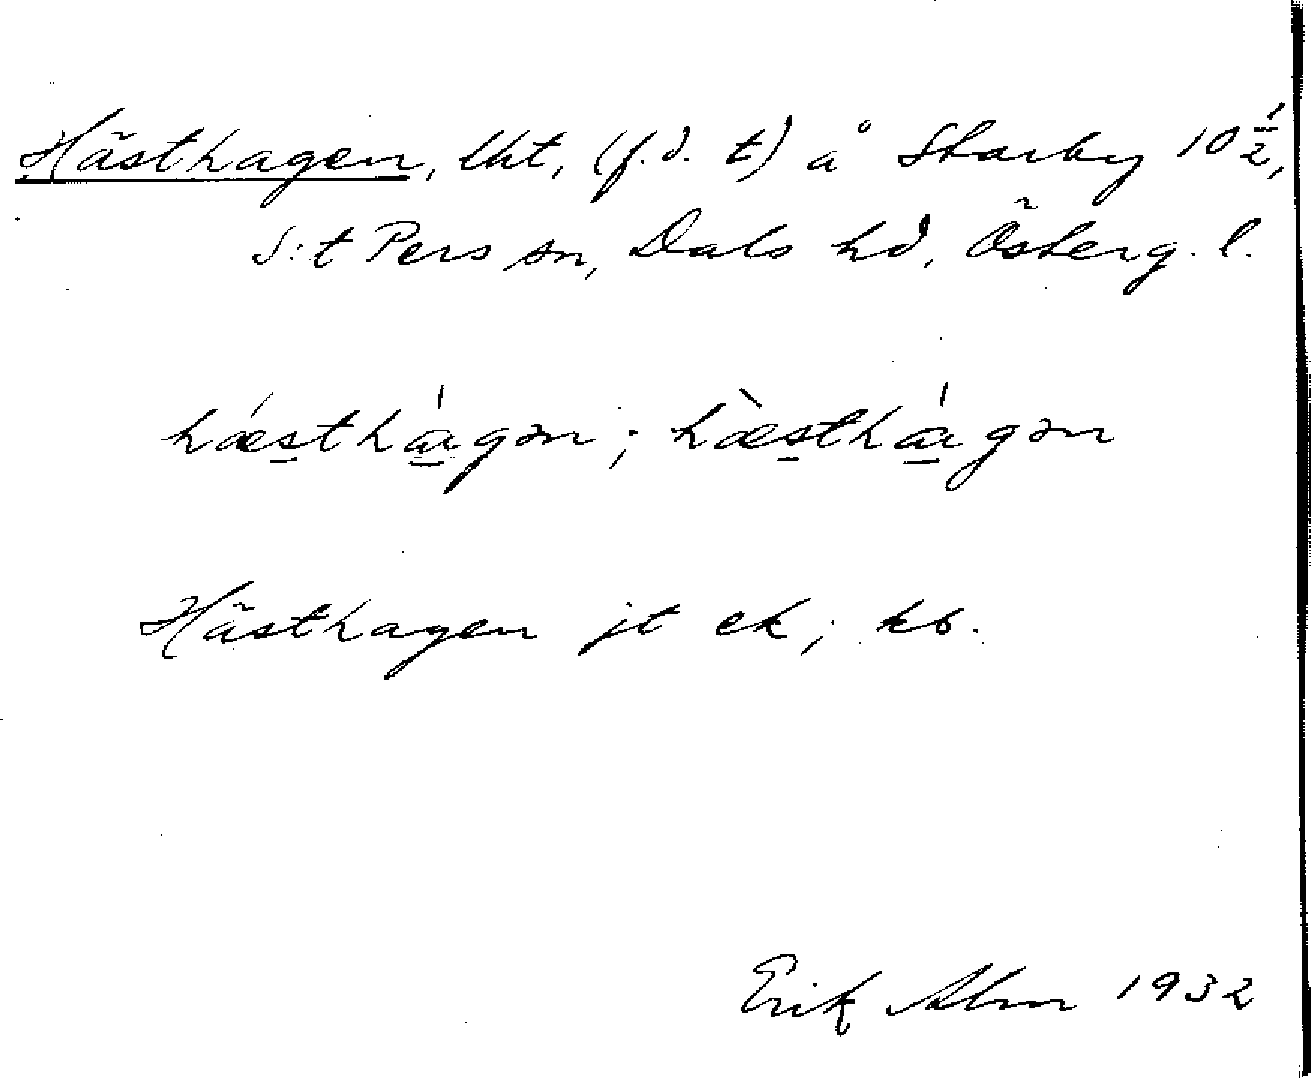 Hästhagen, lht, (f.d. t) å Starby 10 1/2,
S:t Pers sn, Dals hd, Österg. l.
hǽsthágən; hæ̀sthágən
Hästhagen jt ek; kb.
Erik Alm 1932